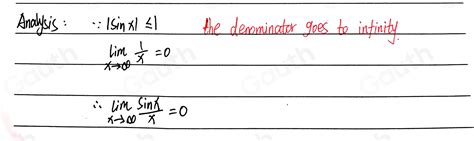 Analysis: ∵ |sin x| ≤ 1 the denominator goes to infinity
lim x→∞ 1/x = 0
∴ lim x→∞ sinx/x = 0